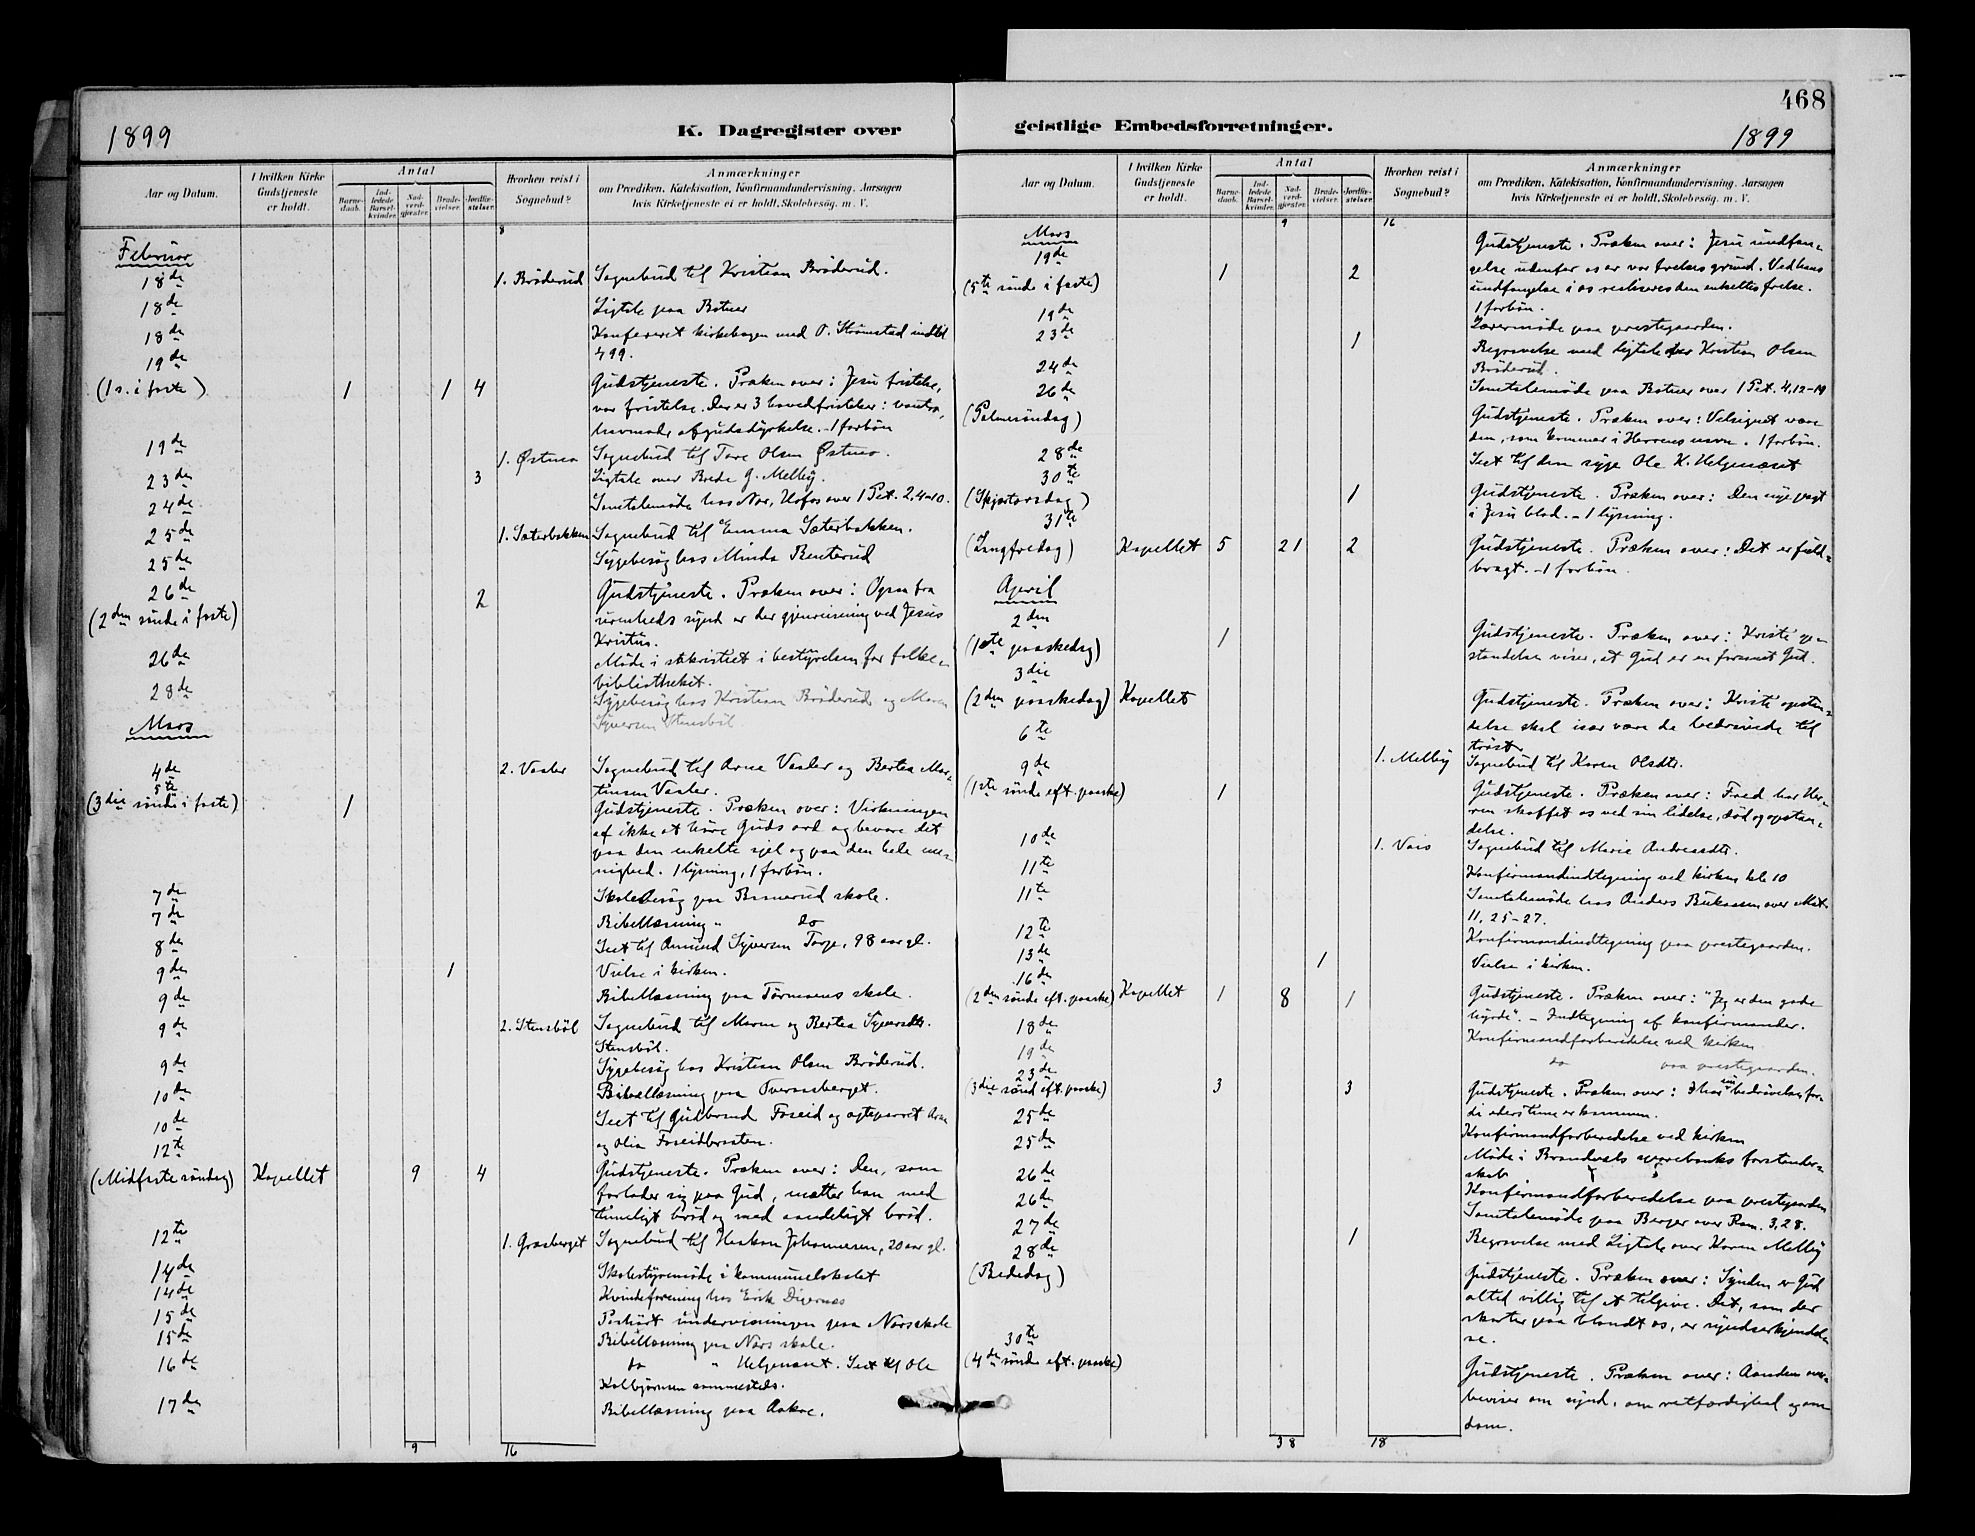 468
1899
K. Dagregister over
geistlige Embedsforretninger.
1899
Aar og Datum.
I hvilken Kirke Gudstjeneste er holdt.
Antal
Barne-daab.
Ind-ledede Barsel-kvinder.
Nad-verd-gjester.
Brude-vielser.
Jordfæ-stelser.
Hvorhen reist i Sognebud?
Anmærkninger
om Prædiken, Katekisation, Konfirmandundervisning, Aarsagen
hvis Kirketjeneste ei er holdt, Skolebesøg, m. V.
8
Februar
18de 1. Brøderud Sognebud til Kristian Brøderud.
18de Ligtale paa Botner
18de Konfereret kirkebogen med O. Strømstad indtil
4 99.
19de
(1 s. i faste) 1 1 4 Gudstjeneste. Præken over: Jesu fristelse,
vor fristelse. Der er 3 hovedfristelser: vantro,
hovmod, afgudsdyrkelse. - 1 forbøn
19de 1. Østmo Sognebud til Tore Olsen Østmo.
23de 3 Ligtale over Brede G. Melby.
24de Samtalemøde hos Nor, Hofos over 1 Pet. 2,4-10.
25de 1. Sæterbakken Sognebud til Emma Sæterbakken.
25de Sygebesøg hos Minda Benterud
26de 2 Gudstjeneste. Præken over: Ogsaa fra
(2den sønd. i faste) urenheds synd er der gjenreisning ved Jesus
Kristus.
26de Møde i sakristiet i bestyrelsen for folke-
bibliotheket.
28de Sygebesøg hos Kristian Brøderud og Maren
Syversen Stensbøl.
Mars
4de 2. Vaaler Sognebud til Arne Vaaler og Bertea Mar-
tinsen Vaaler.
5te
(3die sønd. i faste) 1 Gudstjeneste. Præken over: Virkningen
af ikke at høre Guds ord og bevare det
paa den enkelte sjel og paa den hele me-
nighed. 1 lysning, 1 forbøn.
7de Skolebesøg paa skole.
7de Bibellæsning " do
8de Seet til Amund Syversen Torp, 98 aar gl.
9de 1 Vielse i kirken.
9de Bibellæsning paa skole.
9de 2. Stensbøl Sognebud til Maren og Bertea Syversdtr.
Stensbøl.
9de Sygebesøg hos Kristian Olsen Brøderud.
10de Bibellæsning paa Tveraasberget.
10de Seet til Gudbrand Foseid og egteparret Arne
og Olia Foseidbraaten.
12te
(Midfaste søndag) Kapellet 9 4 Gudstjeneste. Præken over: Den, som
forlader sig paa Gud, mætter han med
timeligt brød og med aandeligt brød.
12te 1. Græsberget Sognebud til Haakon Johannesen, 20 aar gl.
14de Skolestyremøde i kommunelokalet
14de Kvindeforening hos Erik
15de Paahørt undervisningen paa Nors skole
15de Bibellæsning paa Nors skole.
16de do " Helgenæset. Seet til Ole
Kolbjørnsen sammesteds.
17de Bibellæsning paa Aakre.
9 16
Aar og Datum.
I hvilken Kirke Gudstjeneste er holdt.
Antal
Barne-daab.
Ind-ledede Barsel-kvinder.
Nad-verd-gjester.
Brude-vielser.
Jordfæ-stelser.
Hvorhen reist i Sognebud?
Anmærkninger
om Prædiken, Katekisation, Konfirmandundervisning, Aarsagen
hvis Kirketjeneste ei er holdt, Skolebesøg, m. V.
9 16
Mars
19de Gudstjeneste. Præken over: Jesu undfan-
(5te sønd. i faste) 1 2 gelse udenfor os er vor frelses grund. Ved hans
undfangelse i os realiseres den enkeltes frelse.
1 forbøn.
19de Lærermøde paa prestegaarden.
23de 1 Begravelse med ligtale over Kristian Olsen
Brøderud.
24de Samtalemøde paa Botner over 1 Pet. 4,12-19
26de
(Palmesøndag) Gudstjeneste. Præken over: Velsignet være
den, som kommer i Herrens navn. 1 forbøn.
28de Seet til den syge Ole K. Helgenæset
30te
(Skjærtorsdag) 1 Gudstjeneste. Præken over: Den nye pagt
i Jesu blod. - 1 lysning.
31te
(Langfredag) Kapellet 5 21 2 Gudstjeneste. Præken over: Det er fuld-
bragt. - 1 forbøn.
April
2den
(1ste paaskedag) 1 Gudstjeneste. Præken over: Kristi op-
standelse viser, at Gud er en forsonet Gud.
3die
(2den paaskedag) Kapellet Gudstjeneste. Præken over: Kristi opstan-
delse skal især være de bedrøvede til
trøst.
6te 1. Melby Sognebud til Karen Olsdtr.
9de
(1ste sønd. eft. paaske) 1 Gudstjeneste. Præken over: Fred har Her-
ren skaffet os ved sin lidelse, død og opstan-
delse.
10de 1. Vais Sognebud til Marie Andreasdtr.
11te Konfirmandindtegning ved kirken kl. 10
11te Samtalemøde hos Anders over Mat.
11, 25-27.
12te Konfirmandindtegning paa prestegaarden.
13de 1 Vielse i kirken.
16de
(2den sønd. eft. paaske) Kapellet 1 8 1 Gudstjeneste. Præken over: "Jeg er den gode
hyrde". - Indtegning af konfirmander.
18de Konfirmandforberedelse ved kirken
19de do paa prestegaarden.
23de
(3die sønd. eft. paaske) 3 3 Gudstjeneste. Præken over: I har nu bedrøvelse, for-
di eders time er kommen.
25de Konfirmandforberedelse ved kirken
25de Møde i Brandvals sparebanks forstander-
skab.
26de Konfirmandforberedelse paa prestegaarden
26de Samtalemøde paa Berger over Rom. 3,28.
27de 1 Begravelse med Ligtale over Karen Melby
28de
(Bededag) Gudstjeneste. Præken over: Synden er Gud
altid villig til at tilgive. Det, som der
skorter paa blandt os, er syndserkjendel-
se.
30te
(4de sønd. eft. paaske) Gudstjeneste. Præken over: Aanden over-
beviser om synd, om retfærdighed og om
dom.
38 18